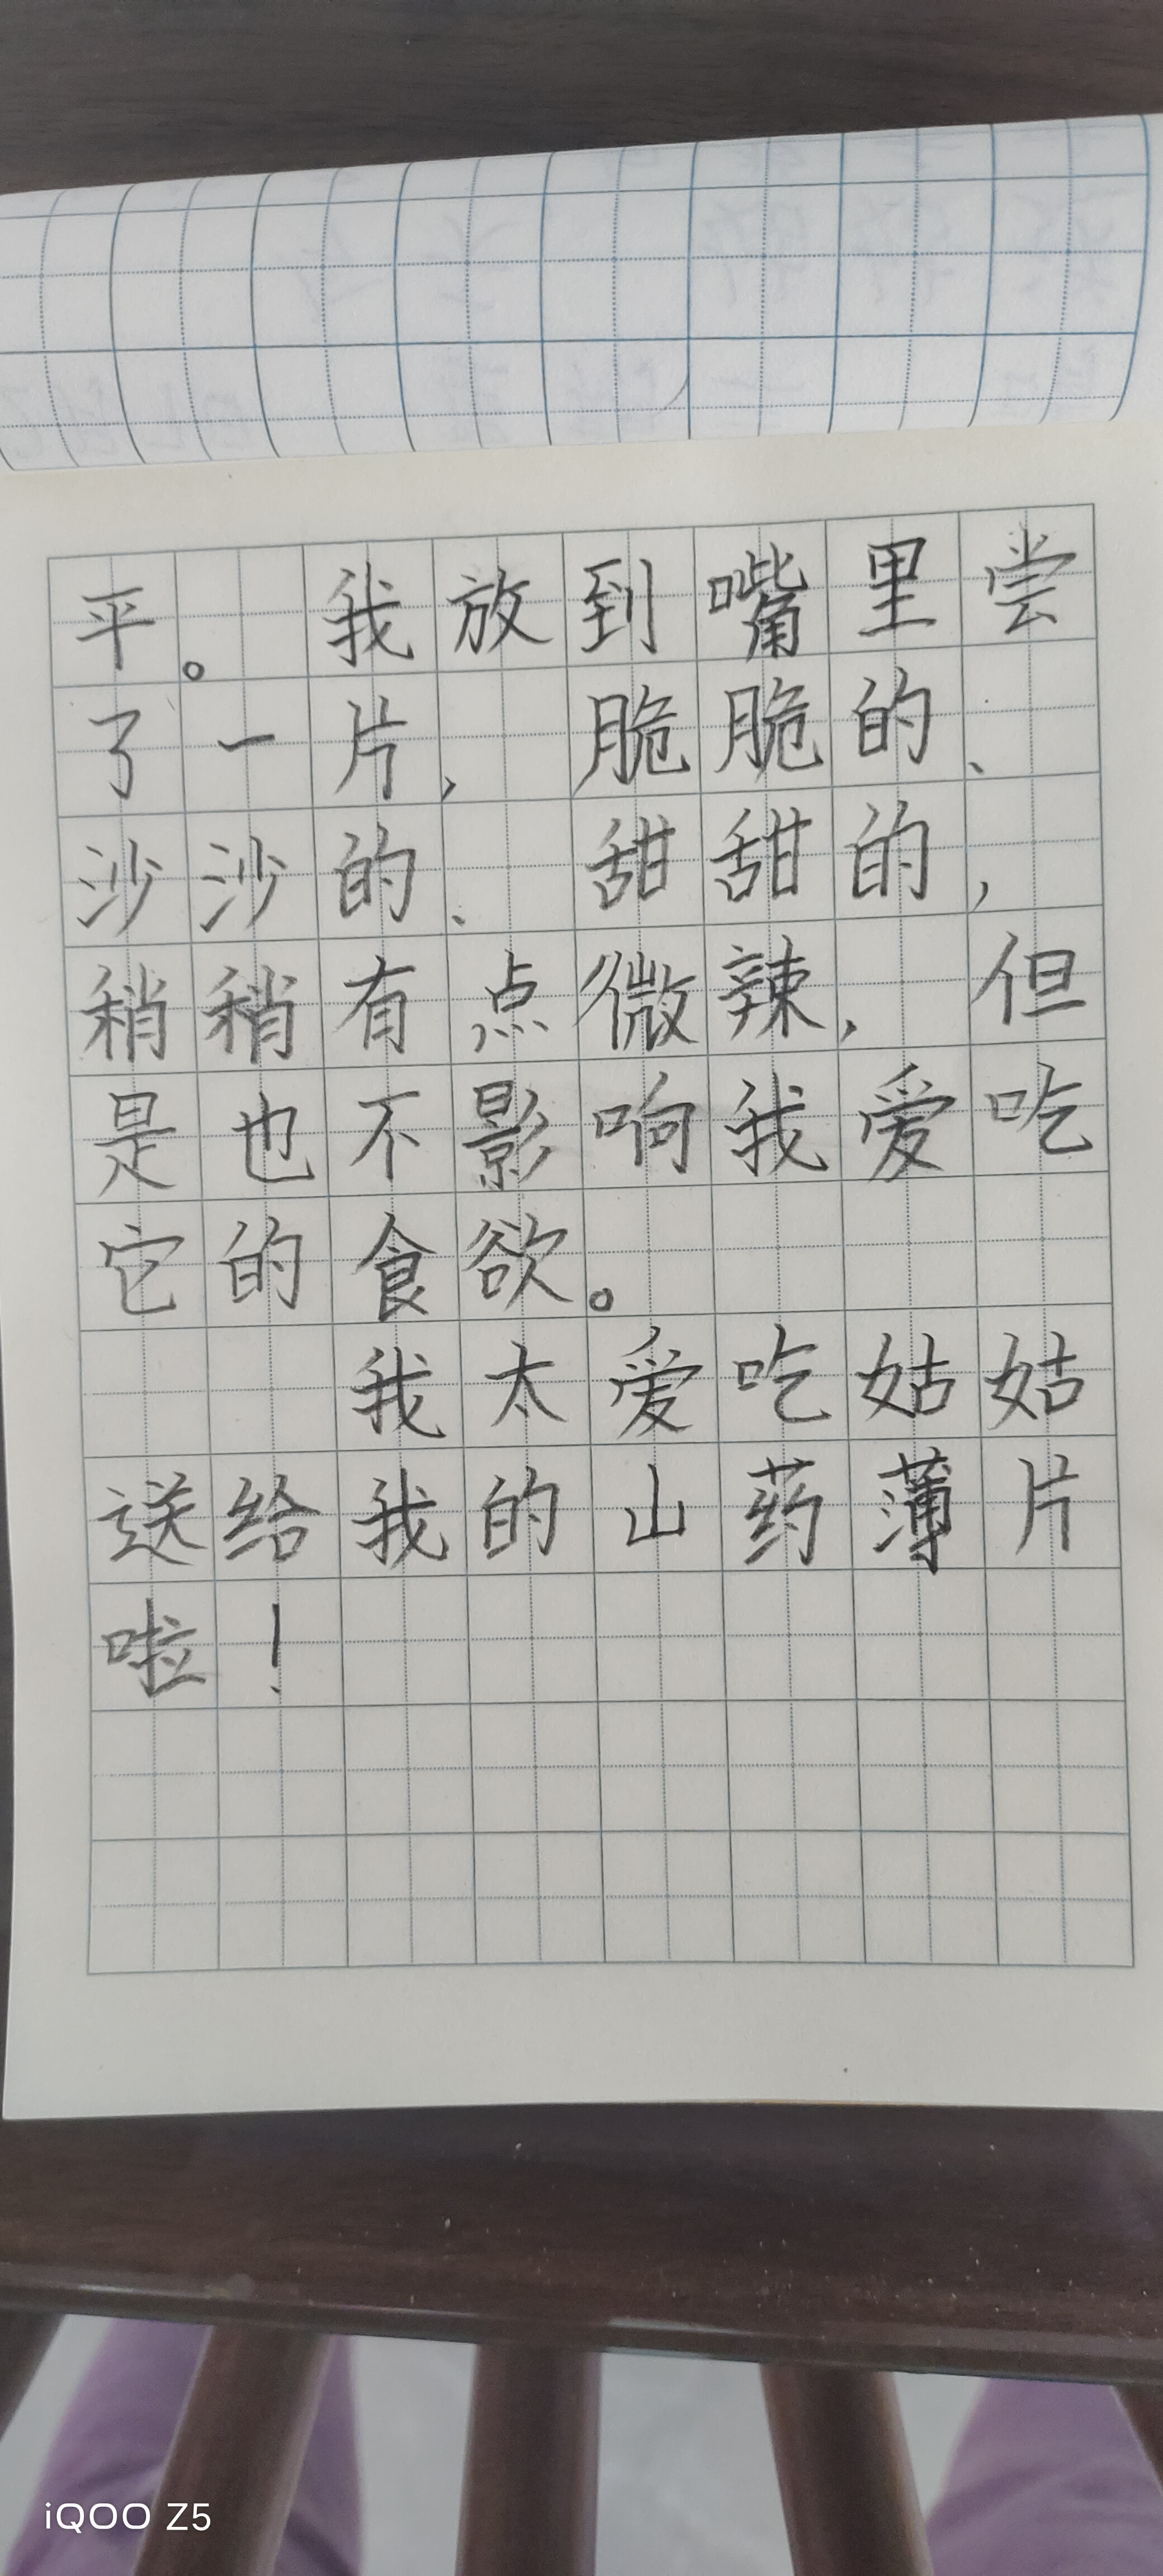 平。我放到嘴里尝
了一片，脆脆的、
沙沙的、甜甜的，
稍稍有点微辣，但
是也不影响我爱吃
它的食欲。
我太爱吃姑姑
送给我的山药薄片
啦！
iQOO Z5